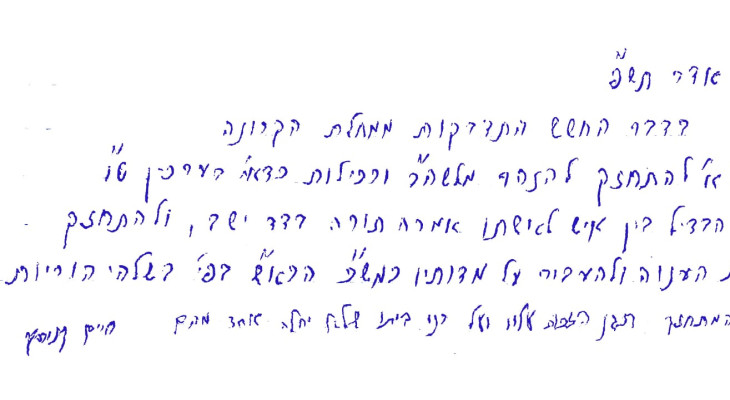 אדר תש"פ
בדבר החשש התדבקות ממחלת הקרונה
א' להתחזק להזהר מלשה"ר ורכילות כדאי' בערכין ט"ו
הבדיל בין איש לאישתו אמרה תורה בדד ישב, ולהתחזק
ת הענוה ולהעביר על מדותיו כמש"כ הרא"ש בפי' בשלהי הוריות
המתחזק תגן הזכות עליו ועל בני ביתו שלא יחלה אחד מהם חיים קניבסקי